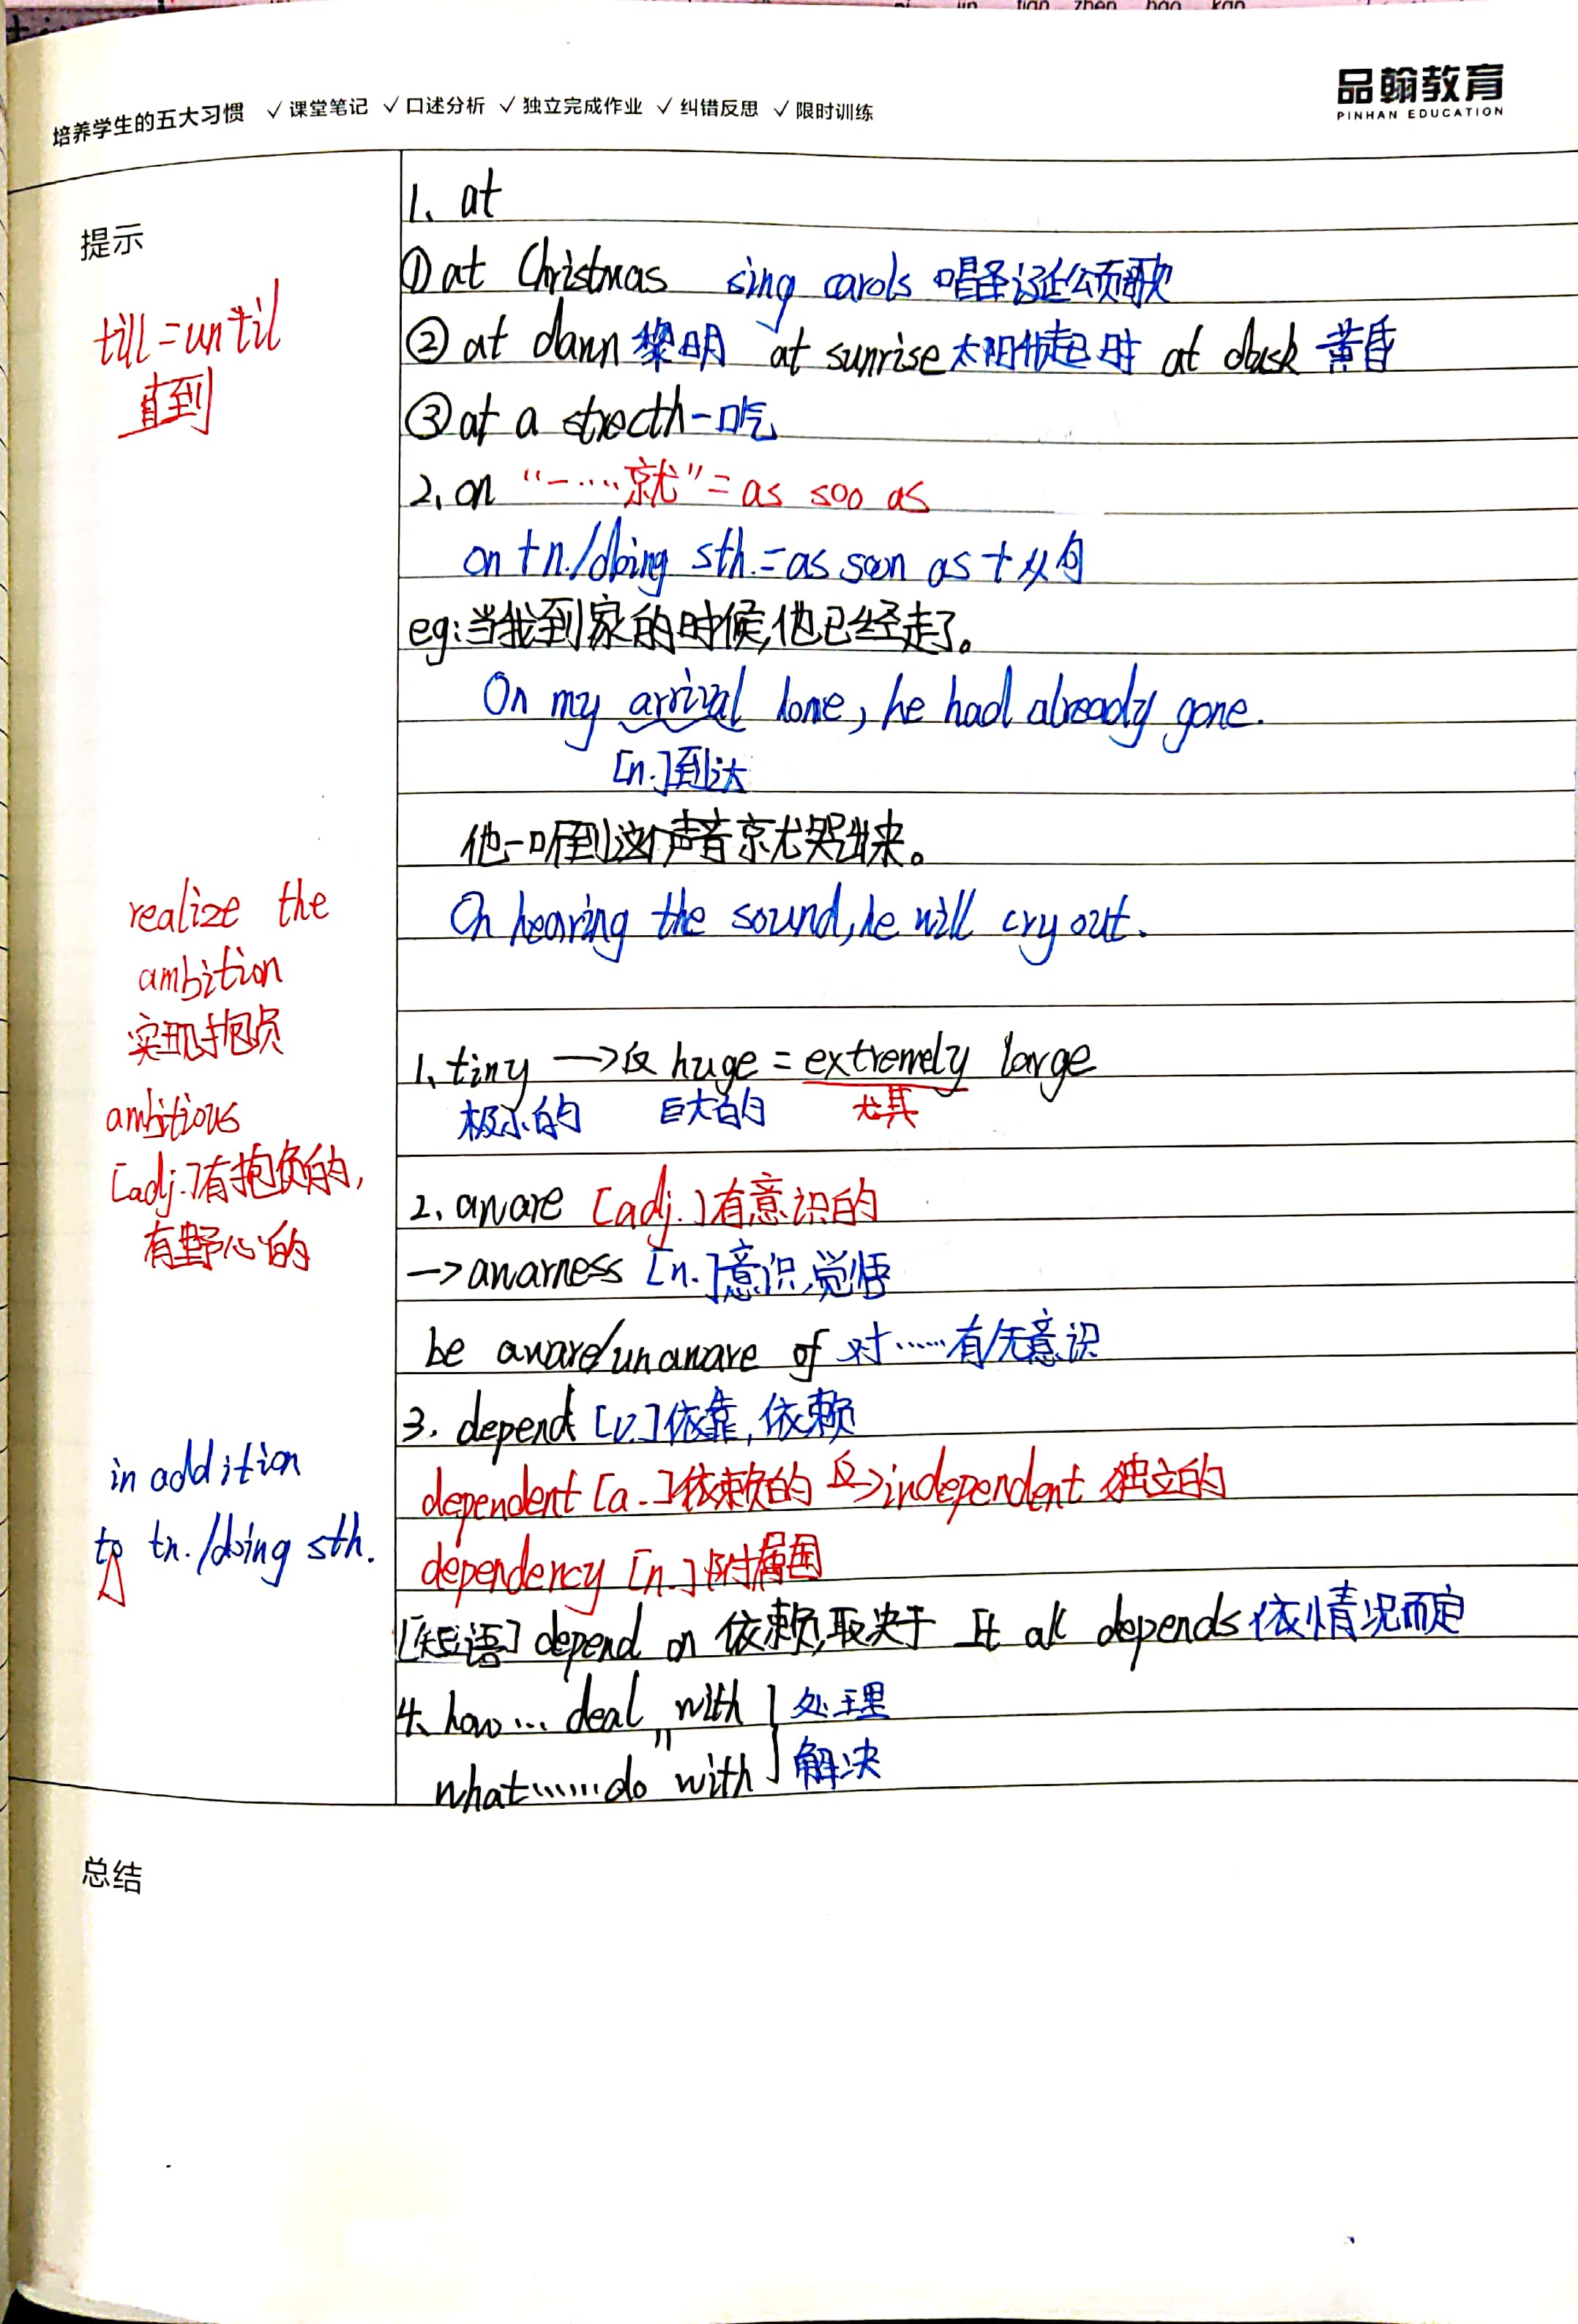 培养学生的五大习惯 ✓课堂笔记 ✓口述分析 ✓独立完成作业 ✓纠错反思 ✓限时训练
品翰教育
PINHAN EDUCATION
提示
till=until
直到
realize the
ambition
实现抱负
ambitious
[adj.]有抱负的,
有野心的
in addition
to +n./doing sth.
1、at
①at Christmas sing carols 唱圣诞颂歌
②at dawn 黎明 at sunrise 太阳升起时 at dusk 黄昏
③at a strecth 一口气
2、on “一……就”=as soo as
on +n./doing sth.=as soon as+从句
eg:当我到家的时候,他已经走了。
On my arrival home, he had already gone.
[n.]到达
他一听到这个声音就哭出来。
On hearing the sound, he will cry out.
1、tiny →反 huge = extremely large
极小的 巨大的 尤其
2、aware [adj.]有意识的
→awarness [n.]意识,觉悟
be aware/unaware of 对……有/无意识
3. depend [v.]依靠,依赖
dependent [a.]依赖的 反→independent 独立的
dependency [n.]附属国
[短语] depend on 依赖,取决于 It all depends 依情况而定
4、how… deal with 处理
what……do with 解决
总结